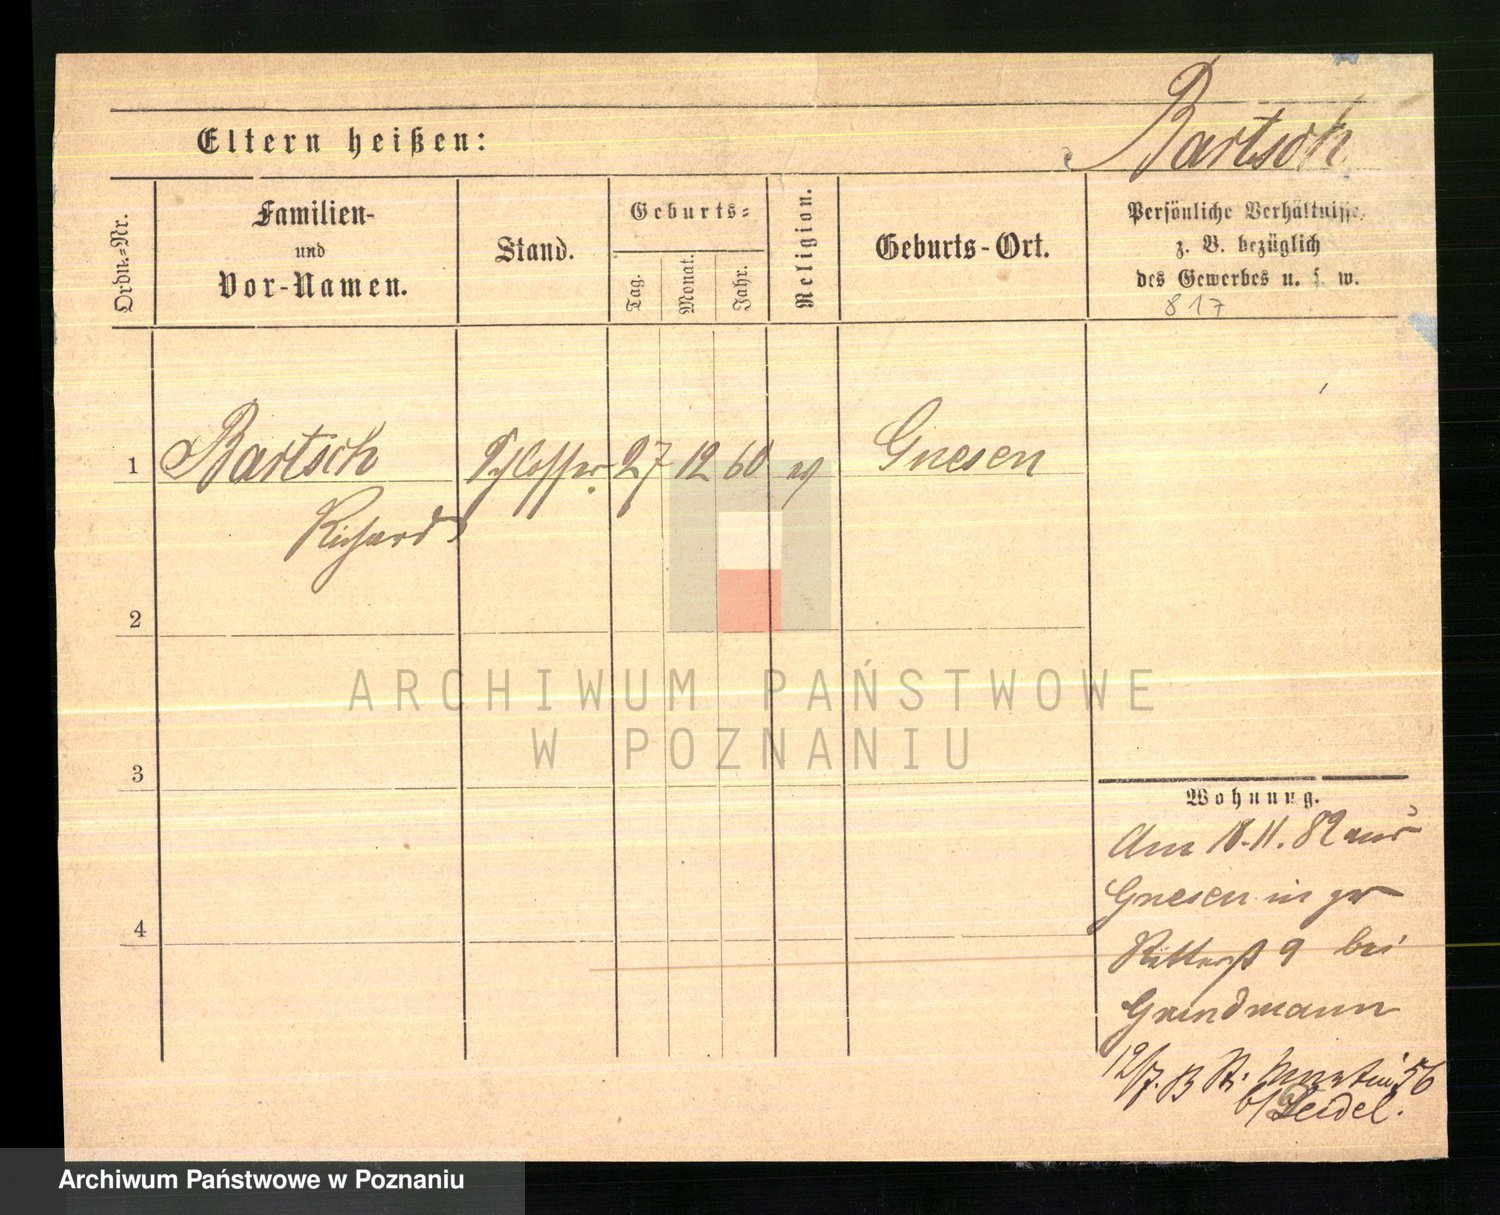 Bartsch
Eltern heißen:
Ordn.-Nr.
Familien-
und
Vor-Namen.
Stand.
Geburts-
Tag.
Monat.
Jahr.
Religion.
Geburts-Ort.
Persönliche Verhältnisse,
z. B. bezüglich
des Gewerbes u. s. w.
817
1 Bartsch Schlosser 27 12 60 ev Gnesen
Richard
2
3
4
Wohnung.
Am 18.11.82 aus
Gnesen in gr
Ritterst 9 bei
Grundmann
12/7. St. Martin 56
b/ Seidel.
ARCHIWUM PAŃSTWOWE
W POZNANIU
Archiwum Państwowe w Poznaniu